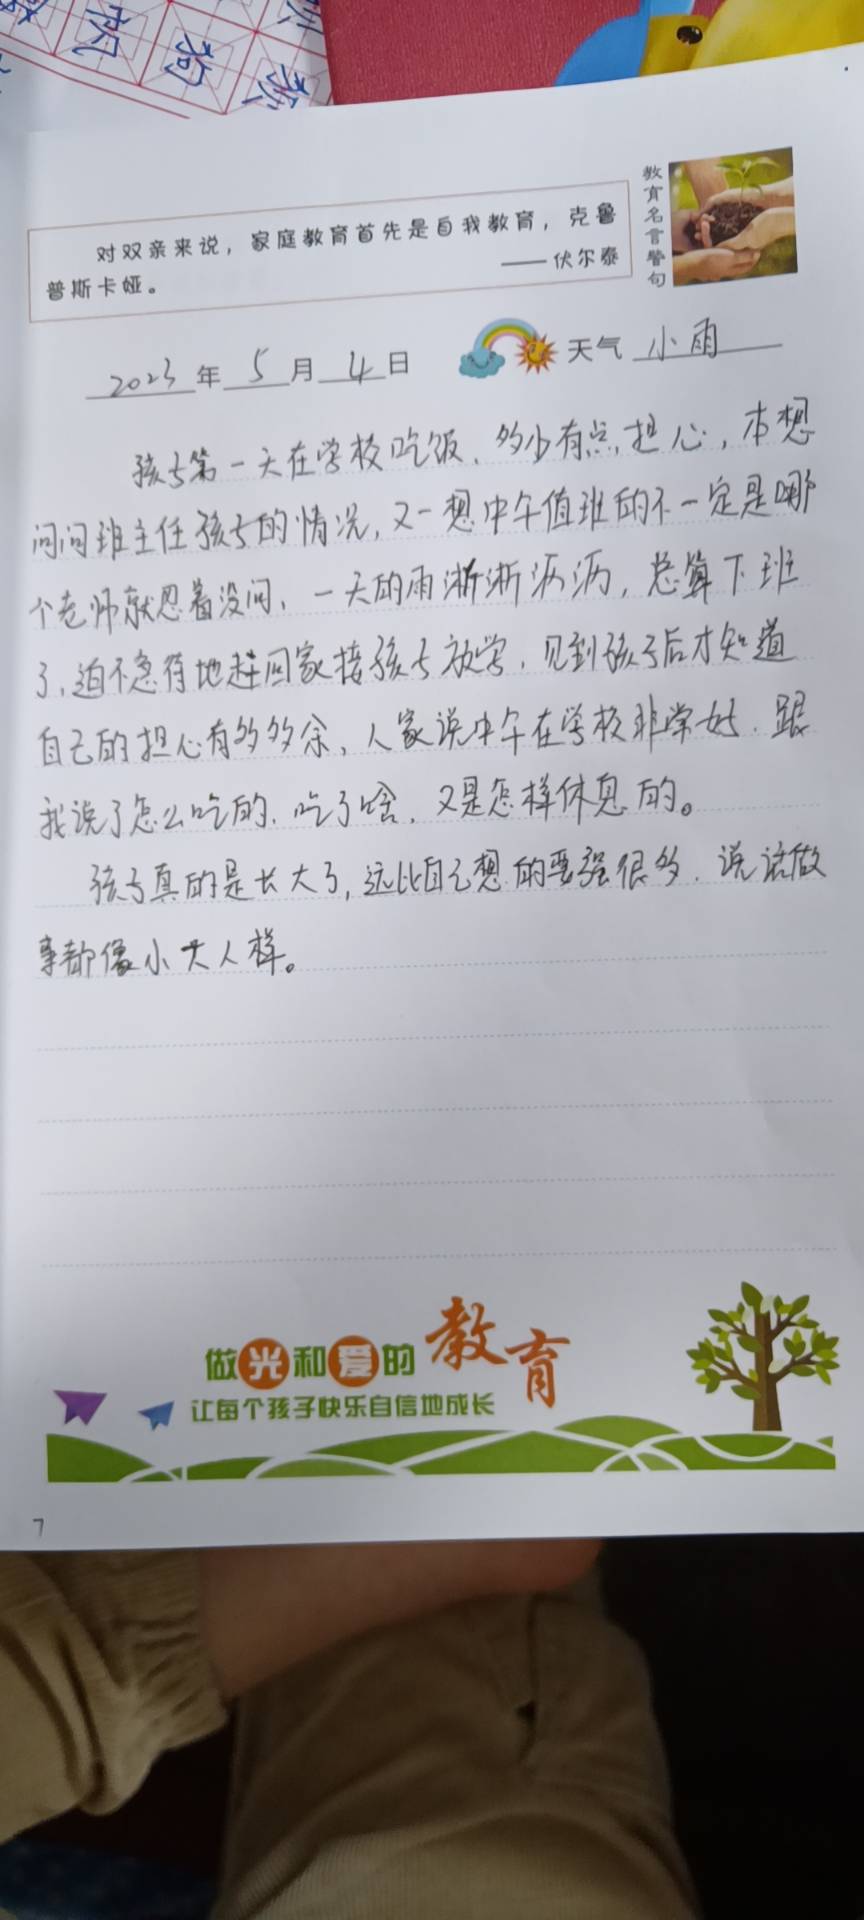 帆
狗
对双亲来说，家庭教育首先是自我教育，克鲁
普斯卡娅。
——伏尔泰
教育名言警句
2023年5月4日
天气 小雨
孩子第一天在学校吃饭、多少有点担心，本想
问问班主任孩子的情况，又一想中午值班的不一定是哪
个老师就忍着没问、一天的雨淅淅沥沥，总算下班
了，迫不急待地赶回家接孩子放学，见到孩子后才知道
自己的担心有多多余、人家说中午在学校非常好．跟
我说了怎么吃的．吃了啥，又是怎样休息的。
孩子真的是长大了，远比自己想的要强很多．说话做
事都像小大人样。
做光和爱的教育
让每个孩子快乐自信地成长
7